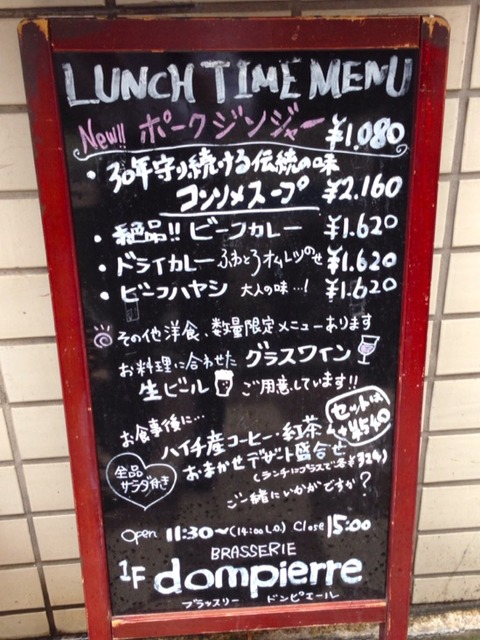 LUNCH TIME MENU
New!! ポークジンジャー ¥1.080
・30年守り続ける伝統の味
コンソメスープ ¥2.160
・絶品!! ビーフカレー ¥1.620
・ドライカレー ふわとろオムレツのせ ¥1.620
・ビーフハヤシ 大人の味…! ¥1.620
その他洋食、数量限定メニューあります
お料理に合わせた グラスワイン
生ビール ご用意しています!!
お食事後に…
セットは +¥540
ハイチ産コーヒー・紅茶
おまかせデザート盛合せ
(ランチにプラスで各¥324)
全品
サラダ付き
ご一緒にいかがですか?
Open 11:30〜(14:00 L.O.) Close 15:00
BRASSERIE
1F dompierre
ブラッスリー ドンピエール